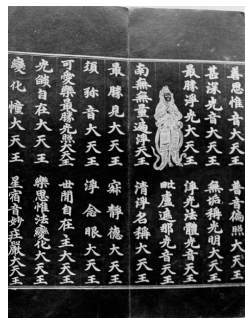 善思惟音大天王 普音徧照大天王
甚深光音大天王 無垢稱光明大天王
最勝淨光大天王 淨光法體光音天王
毗盧遮那光音天王
南無無量遍淨天王 清淨名稱大天王
最勝見大天王 寂靜德大天王
須弥音大天王 淨念眼大天王
可愛樂最勝光照天王 世間自在主大天王
光燄自在大天王 樂思惟法變化大天王
變化幢大天王 星宿音妙莊嚴大天王